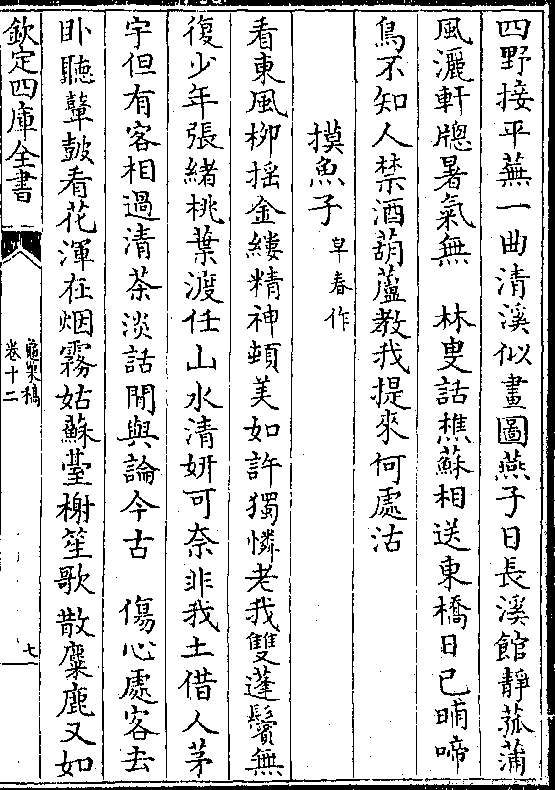 四野接平蕪一曲清溪似畫圖燕子日長溪館靜菰蒲
風灑軒牕暑氣無　林叟話樵蘇相送東橋日已晡啼
鳥不知人禁酒葫蘆教我提來何處沽
摸魚子　早春作
看東風柳揺金縷精神頓美如許獨憐老我雙蓬鬢無
復少年張緒桃葉渡任山水清妍可奈非我土借人茅
宇但有客相過清茶淡話閒與論今古　傷心處客去
卧聽鼙鼓看花渾在烟霧姑蘇臺榭笙歌散麋鹿又如
欽定四庫全書
龜巢稿
卷十二
七